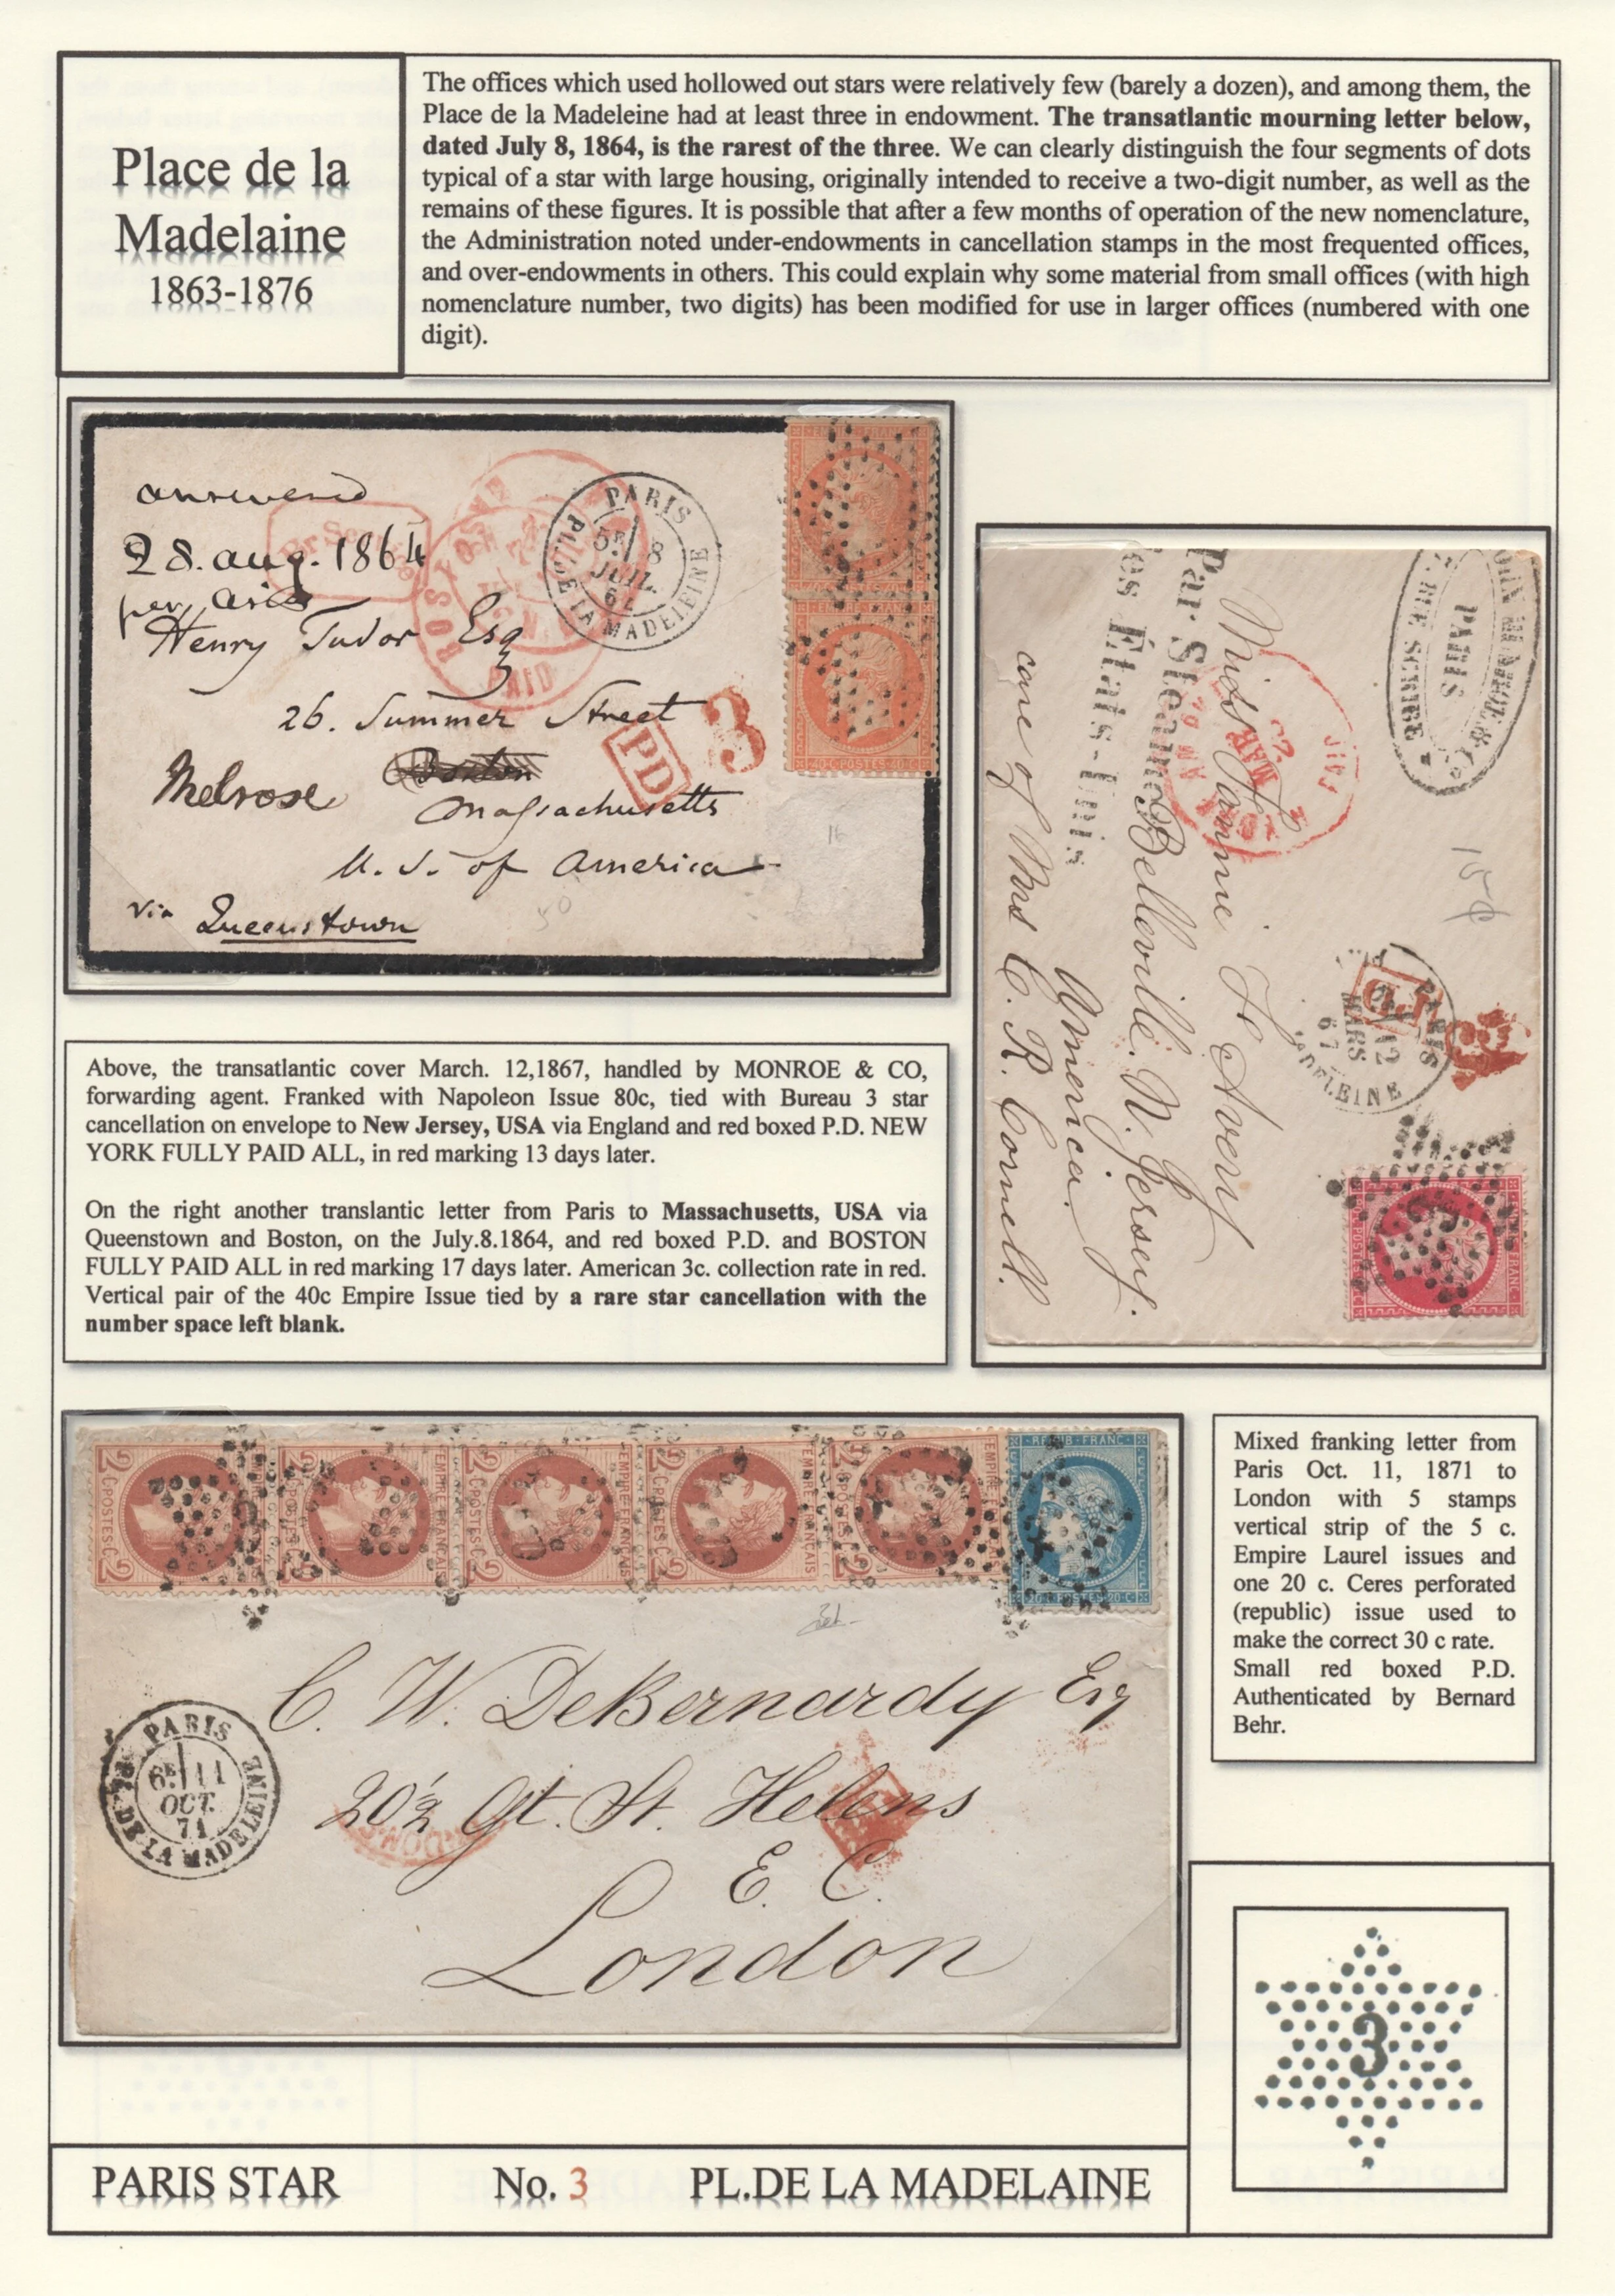 Place de la
Madelaine
1863-1876
The offices which used hollowed out stars were relatively few (barely a dozen), and among them, the
Place de la Madeleine had at least three in endowment. The transatlantic mourning letter below,
dated July 8, 1864, is the rarest of the three. We can clearly distinguish the four segments of dots
typical of a star with large housing, originally intended to receive a two-digit number, as well as the
remains of these figures. It is possible that after a few months of operation of the new nomenclature,
the Administration noted under-endowments in cancellation stamps in the most frequented offices,
and over-endowments in others. This could explain why some material from small offices (with high
nomenclature number, two digits) has been modified for use in larger offices (numbered with one
digit).
answered
28. aug. 1864
per
Henry Tudor Esq
26. Summer Street
Boston
Melrose
Massachusetts
U. S. of America
via Queenstown
PARIS
PL. DE LA MADELEINE
8
JUIL.
BOSTON
PAID
PD
3
EMPIRE FRANC
40 C POSTES 40 C
16
50
PARIS
Par Steamer
des États-Unis
Miss Fannie Le Avery
Belleville. N. Jersey.
America.
care of Mrs C. R. Cornell.
PAID
MAR
PD
PARIS
12
MARS
67
Above, the transatlantic cover March. 12,1867, handled by MONROE & CO,
forwarding agent. Franked with Napoleon Issue 80c, tied with Bureau 3 star
cancellation on envelope to New Jersey, USA via England and red boxed P.D. NEW
YORK FULLY PAID ALL, in red marking 13 days later.
On the right another translantic letter from Paris to Massachusetts, USA via
Queenstown and Boston, on the July.8.1864, and red boxed P.D. and BOSTON
FULLY PAID ALL in red marking 17 days later. American 3c. collection rate in red.
Vertical pair of the 40c Empire Issue tied by a rare star cancellation with the
number space left blank.
2 C. POSTES C. 2
EMPIRE FRANÇAIS
REPUB. FRANC.
20 C POSTES 20 C
C. W. DeBernardy Esq
20½ Gt. St. Helens
E. C.
London
PARIS
6E 11
OCT.
71
PL. DE LA MADELEINE
Mixed franking letter from
Paris Oct. 11, 1871 to
London with 5 stamps
vertical strip of the 5 c.
Empire Laurel issues and
one 20 c. Ceres perforated
(republic) issue used to
make the correct 30 c rate.
Small red boxed P.D.
Authenticated by Bernard
Behr.
3
PARIS STAR No. 3 PL.DE LA MADELAINE